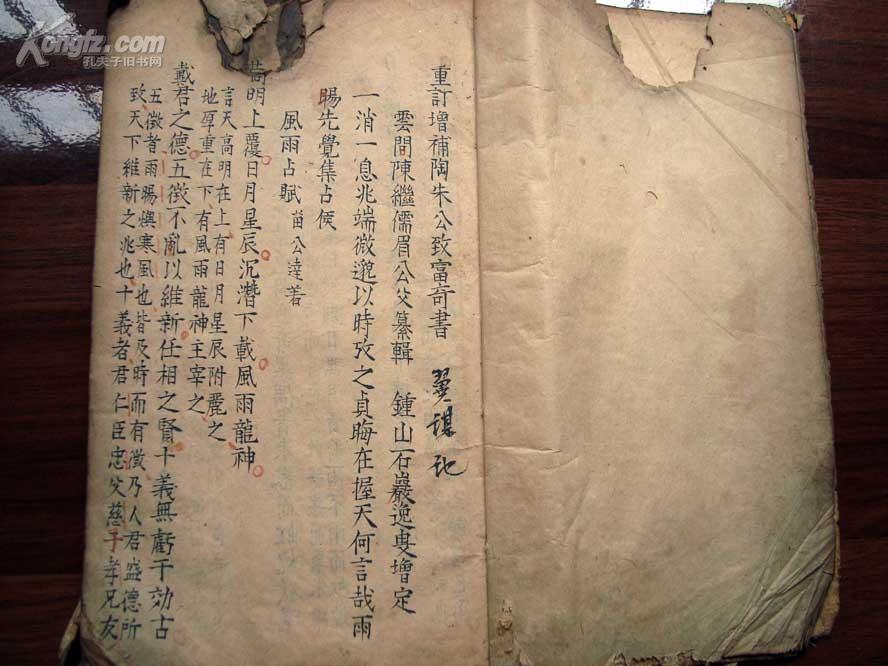 重訂增補陶朱公致富奇書
雲間陳繼儒眉公父纂輯 鍾山石巖逸叟增定
一消一息兆端微邈以時攷之貞晦在握天何言哉雨
暘先覺集占候
風雨占賦 苗公達著
高明上覆日月星辰沉潛下載風雨龍神
言天高明在上有日月星辰附麗之
地厚重在下有風雨龍神主宰之
戴君之德五徵不亂以維新任相之賢十義無虧于効古
五徵者雨暘燠寒風也皆及時而有徵乃人君盛德所
致天下維新之兆也十義者君仁臣忠父慈子孝兄友
Kongfz.com
孔夫子旧书网